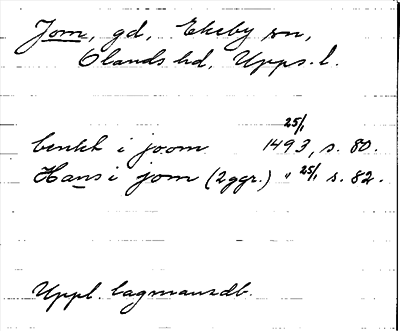 Jom, gd, Ekeby sn,
Olands hd, Upps. l.
benkt i joom 25/1 1493, s. 80.
Hans i jom (2 ggr.) " 25/1 s. 82.
Uppl. lagmansdb.